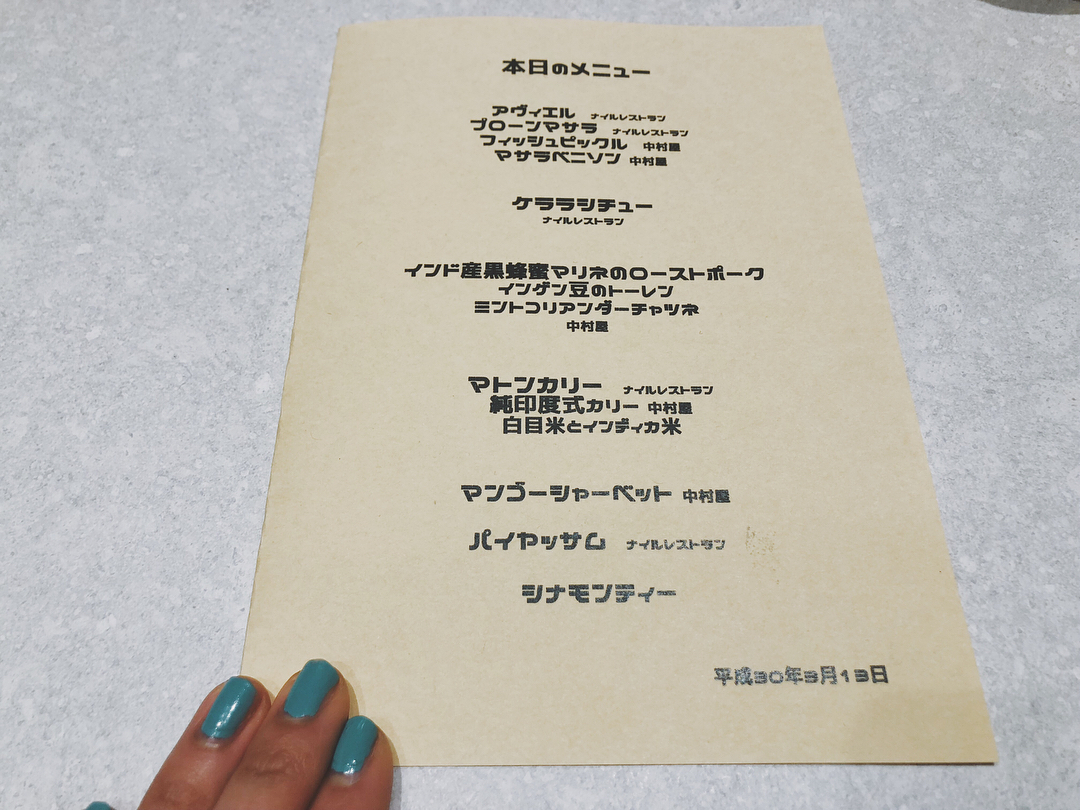 本日のメニュー
アヴィエル ナイルレストラン
プローンマサラ ナイルレストラン
フィッシュピックル 中村屋
マサラベニソン 中村屋
ケララシチュー
ナイルレストラン
インド産黒蜂蜜マリネのローストポーク
インゲン豆のトーレン
ミントコリアンダーチャツネ
中村屋
マトンカリー ナイルレストラン
純印度式カリー 中村屋
白目米とインディカ米
マンゴーシャーベット 中村屋
パイヤッサム ナイルレストラン
シナモンティー
平成30年3月13日